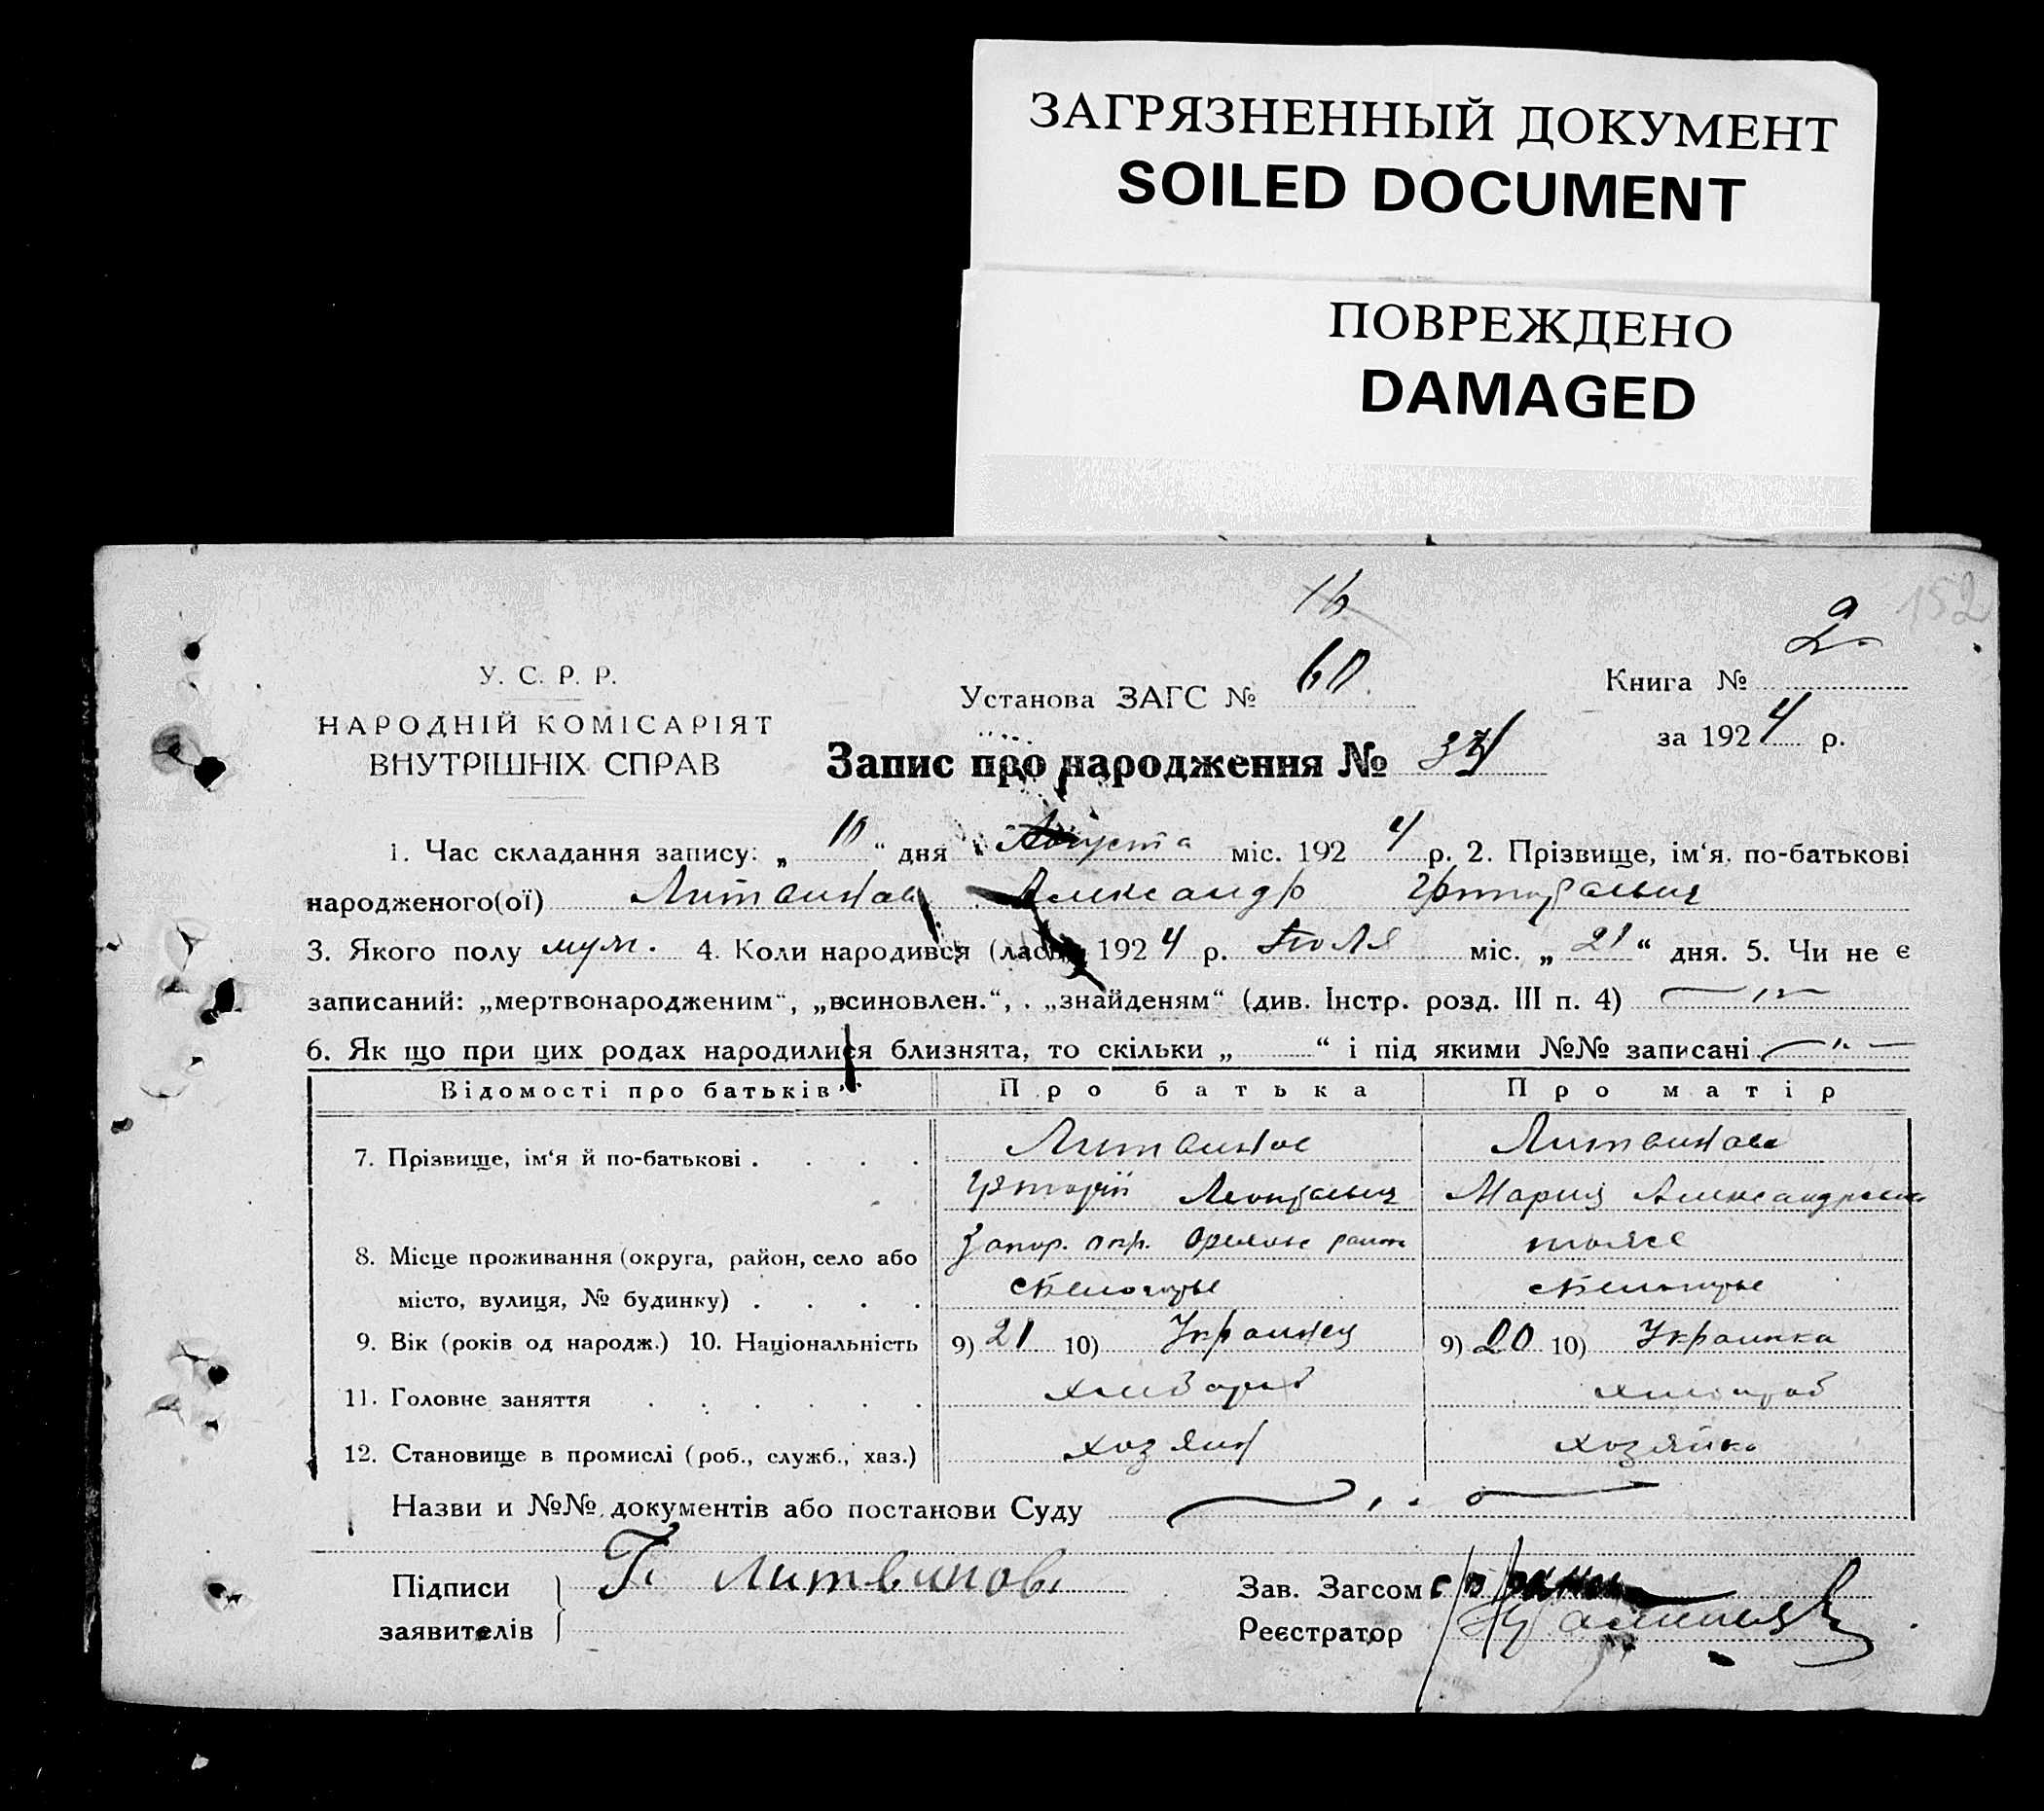 ЗАГРЯЗНЕННЫЙ ДОКУМЕНТ
SOILED DOCUMENT
ПОВРЕЖДЕНО
DAMAGED
152
16
У. С. Р. Р.
НАРОДНІЙ КОМІСАРІЯТ
ВНУТРІШНІХ СПРАВ
Установа ЗАГС № 60
Книга № 2
за 1924 р.
Запис про народження №
1. Час складання запису: „ 10 “ дня Августа міс. 1924 р. 2. Прізвище, ім‘я, по-батькові
народженого(ої) Литвинов Александр
3. Якого полу муж. 4. Коли народився (лась) 1924 р. Июля міс. „ 21 “ дня. 5. Чи не є
записаний: „мертвонародженим“, „всиновлен.“, „знайденям“ (див. Інстр. розд. III п. 4)
6. Як що при цих родах народилися близнята, то скільки „ “ і під якими №№ записані
Відомості про батьків Про батька Про матір
7. Прізвище, ім‘я й по-батькові . . . . Литвинов Литвинова
Григорій Мария Александровна
8. Місце проживання (округа, район, село або Запор. окр. район тоже
місто, вулиця, № будинку) . . . .
9. Вік (років од народж.) 10. Національність 9) 21 10) Украинец 9) 20 10) Украинка
11. Головне заняття . . . . . . хлебороб хлебороб
12. Становище в промислі (роб., служб., хаз.) хозяин хозяйка
Назви и №№ документів або постанови Суду
Підписи
заявителів
Г. Литвинов
Зав. Загсом
Реєстратор